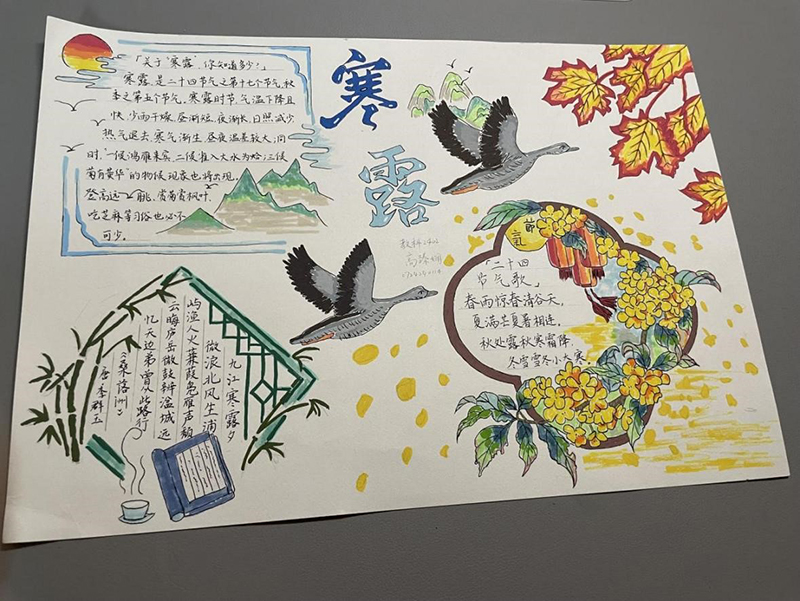 「关于"寒露"你知道多少?」
寒露,是二十四节气之第十七个节气,秋
季之第五个节气。寒露时节,气温下降且
快,少雨干燥,昼渐短,夜渐长,日照减少
热气退去,寒气渐生,昼夜温差较大,同
时,"一候鸿雁来宾,二候雀入大水为蛤,三候
菊有黄华"的物候现象也将出现。
登高远眺,赏菊赏枫叶,
吃芝麻等习俗也必不
可少。
寒
露
节
氣
二十四
节气歌,
春雨惊春清谷天,
夏满芒夏暑相连。
秋处露秋寒霜降,
冬雪雪冬小大寒。
九江寒露夕
微浪北风生浦
屿渔人火蒹葭凫雁声颓
云晦庐岳微鼓辨湓城远
忆天边弟曾从此路行
《桑落洲》
唐·李群玉